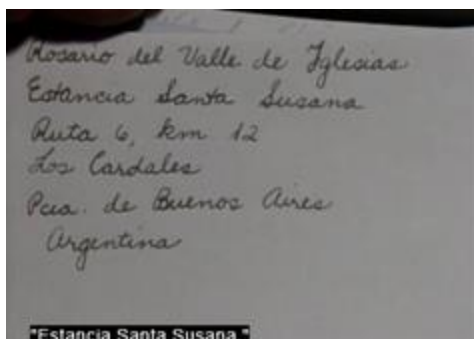 Rosario del Valle de Iglesias
Estancia Santa Susana
Ruta 6, km 12
Los Cardales
Pcia. de Buenos Aires
Argentina
"Estancia Santa Susana."